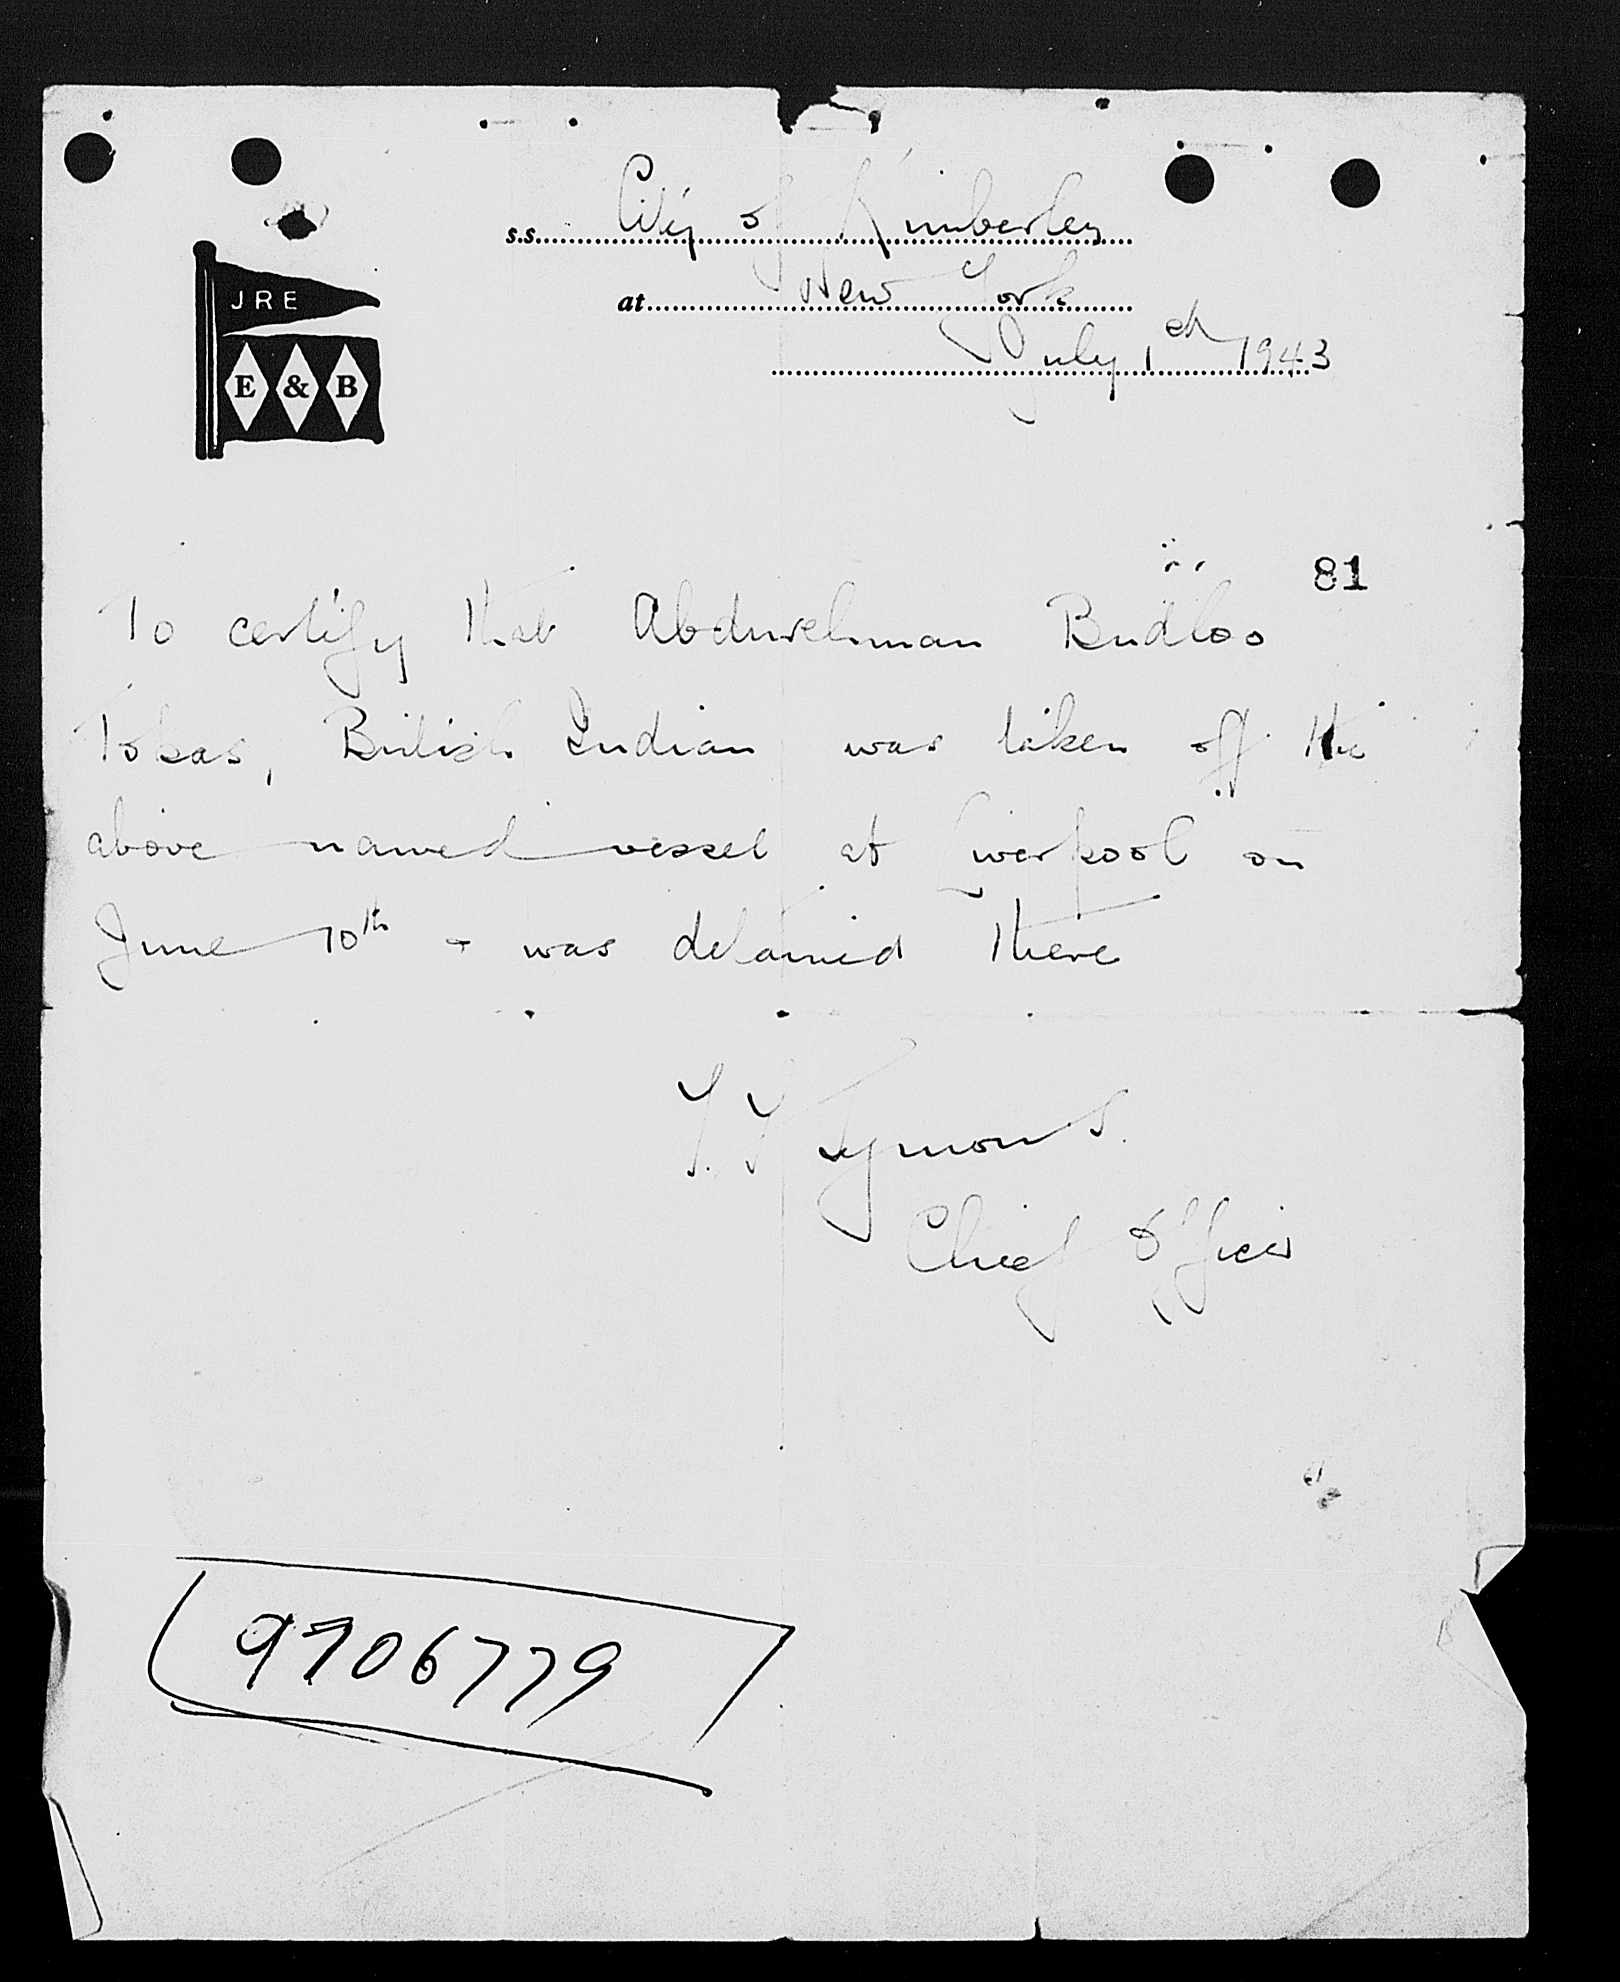 s.s. City of Kimberley
at New York
July 1st 1943
JRE
E & B
81
To certify that Abdurehman Budloo
Tokas, British Indian was taken off the
above named vessel at Liverpool on
June 10th + was detained there
Symons.
Chief Officer
9706779